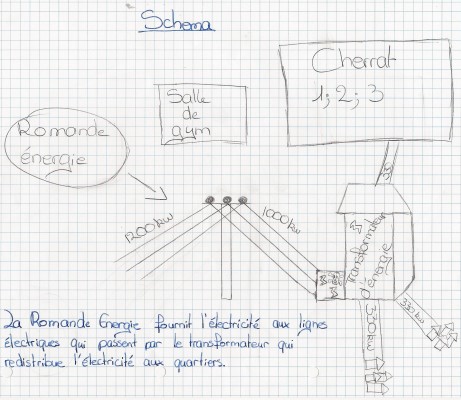 Schema
Cherrat
1; 2; 3
Salle
de
gym
Romande
énergie
1200 kw
1000 kw
Transformateur
d'énergie
330 kw
330 kw
La Romande Energie fournit l'électricité aux lignes
électriques qui passent par le transformateur qui
redistribue l'électricité aux quartiers.